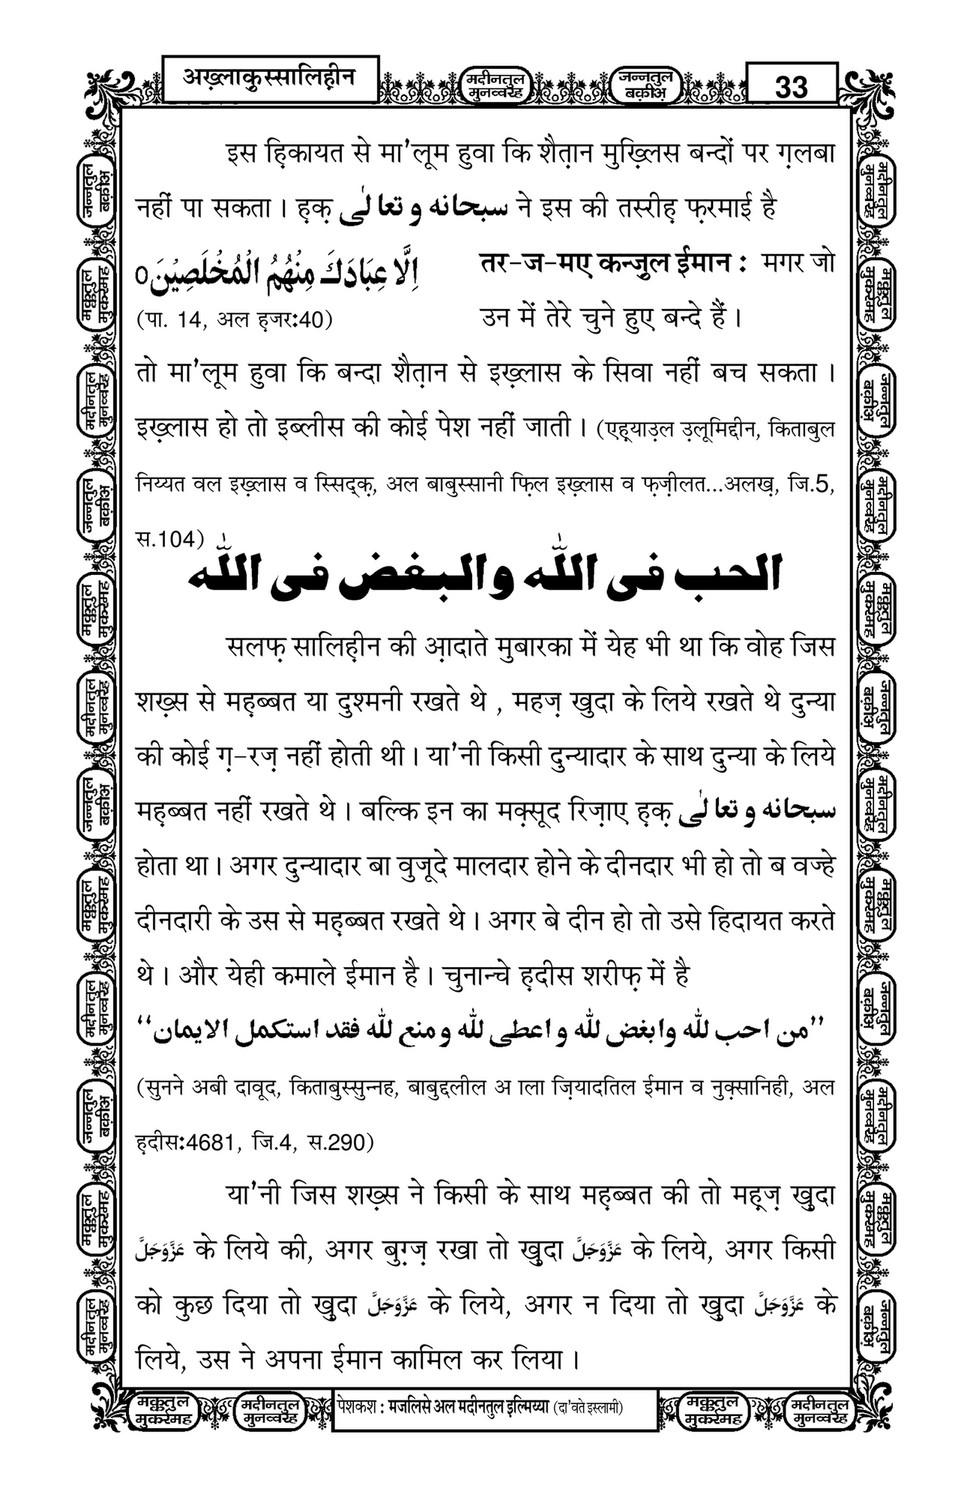 अख़्लाक़ुस्सालिह़ीन
मदीनतुल मुनव्वरह
जन्नतुल बक़ीअ़
33
इस ह़िकायत से मा'लूम हुवा कि शैत़ान मुख़्लिस बन्दों पर ग़लबा
नहीं पा सकता । ह़क़ سبحانه و تعالٰى ने इस की तस्रीह़ फ़रमाई है
اِلَّا عِبَادَكَ مِنْهُمُ الْمُخْلَصِيْنَ٥
(पा. 14, अल ह़जर:40)
तर-ज-मए कन्ज़ुल ईमान : मगर जो
उन में तेरे चुने हुए बन्दे हैं ।
तो मा'लूम हुवा कि बन्दा शैत़ान से इख़्लास के सिवा नहीं बच सकता ।
इख़्लास हो तो इब्लीस की कोई पेश नहीं जाती । (एह़्याउ़ल उ़लूमिद्दीन, किताबुल
निय्यत वल इख़्लास व स्सिद्क़, अल बाबुस्सानी फ़िल इख़्लास व फ़ज़ीलत...अलख़, जि.5,
स.104)
الحب فى اللّٰه والبغض فى اللّٰه
सलफ़ सालिह़ीन की आ़दाते मुबारका में येह भी था कि वोह जिस
शख़्स से मह़ब्बत या दुश्मनी रखते थे , महज़ ख़ुदा के लिये रखते थे दुन्या
की कोई ग़-रज़ नहीं होती थी । या'नी किसी दुन्यादार के साथ दुन्या के लिये
मह़ब्बत नहीं रखते थे । बल्कि इन का मक़्सूद रिज़ाए ह़क़ سبحانه و تعالٰى
होता था । अगर दुन्यादार बा वुजूदे मालदार होने के दीनदार भी हो तो ब वज्हे
दीनदारी के उस से मह़ब्बत रखते थे । अगर बे दीन हो तो उसे हिदायत करते
थे । और येही कमाले ईमान है । चुनान्चे ह़दीस शरीफ़ में है
’’من احب للّٰه وابغض للّٰه و اعطى للّٰه و منع للّٰه فقد استكمل الايمان‘‘
(सुनने अबी दावूद, किताबुस्सुन्नह, बाबुद्दलील अ ाला ज़ियादतिल ईमान व नुक़्सानिही, अल
ह़दीस:4681, जि.4, स.290)
या'नी जिस शख़्स ने किसी के साथ मह़ब्बत की तो मह़्ज़ ख़ुदा
عَزَّوَجَلَّ के लिये की, अगर बुग़्ज़ रखा तो ख़ुदा عَزَّوَجَلَّ के लिये, अगर किसी
को कुछ दिया तो ख़ुदा عَزَّوَجَلَّ के लिये, अगर न दिया तो ख़ुदा عَزَّوَجَلَّ के
लिये, उस ने अपना ईमान कामिल कर लिया ।
मक्कतुल मुकर्रमह
मदीनतुल मुनव्वरह
पेशकश : मजलिसे अल मदीनतुल इल्मिय्या (दा'वते इस्लामी)
मक्कतुल मुकर्रमह
मदीनतुल मुनव्वरह